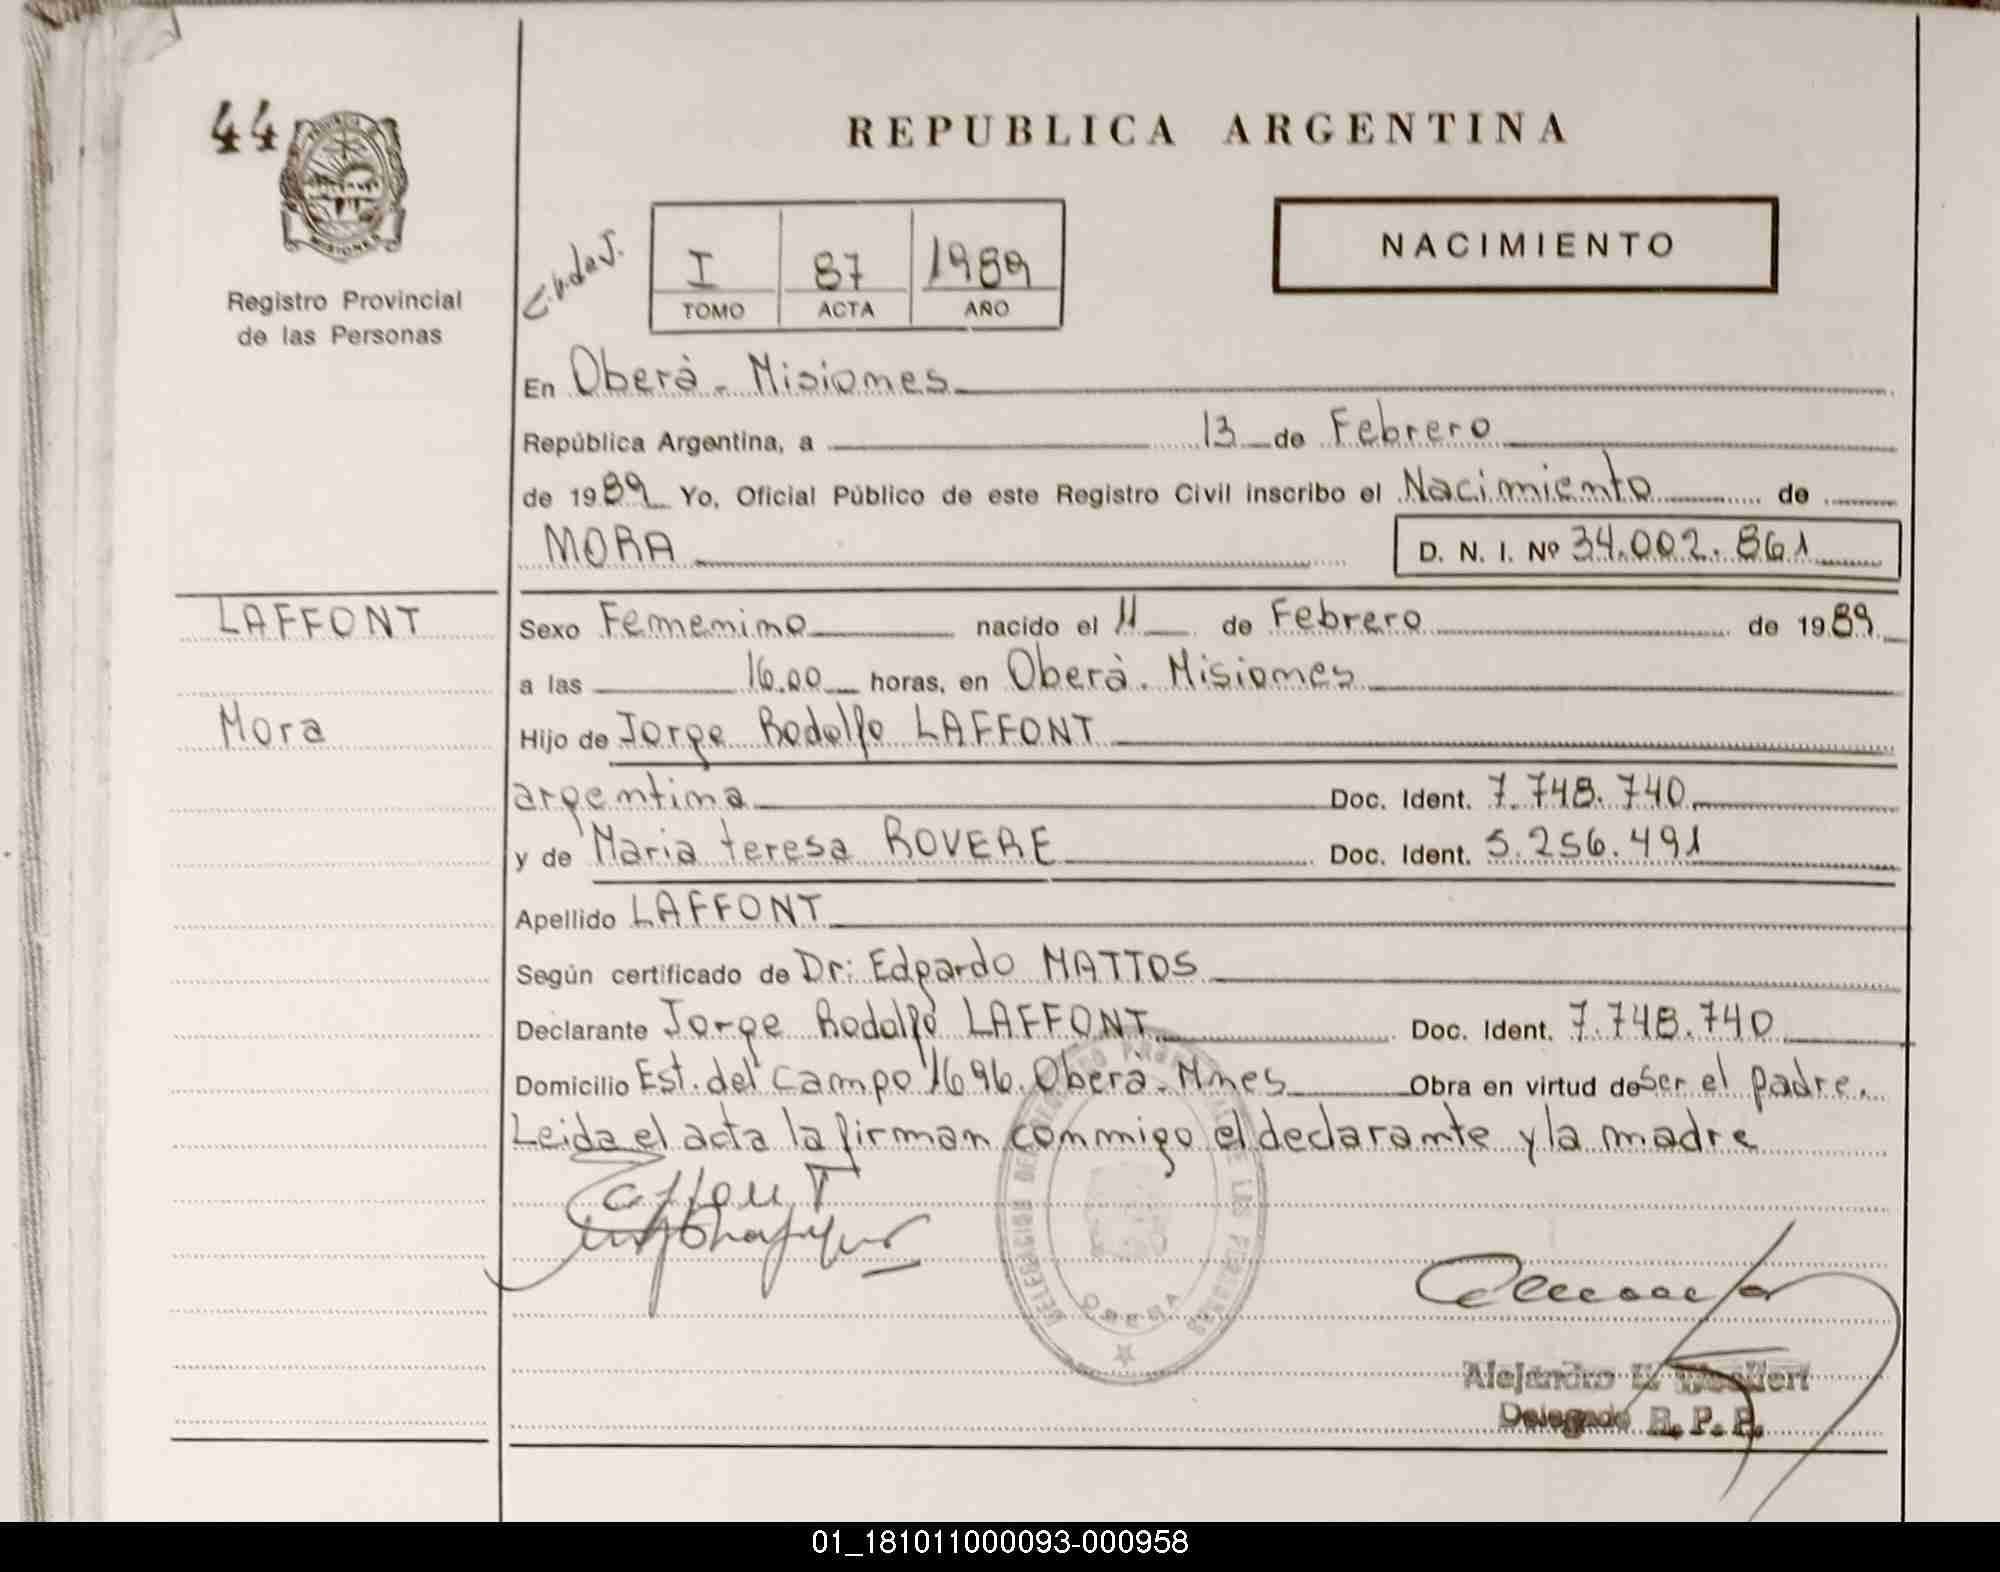 44
REPUBLICA ARGENTINA
MISIONES
Registro Provincial
de las Personas
I 87 1989
TOMO ACTA AÑO
NACIMIENTO
En Oberà - Misiones
República Argentina, a 13 de Febrero
de 1989 Yo, Oficial Público de este Registro Civil inscribo el Nacimiento de
MORA D. N. I. Nº 34.002.861
LAFFONT
Mora
Sexo Femenino nacido el 11 de Febrero de 1989
a las 16.00 horas, en Oberà. Misiones
Hijo de Jorge Rodolfo LAFFONT
argentina Doc. Ident. 7.748.740
y de Maria teresa ROVERE Doc. Ident. 5.256.491
Apellido LAFFONT
Según certificado de Dr: Edgardo MATTOS
Declarante Jorge Rodolfo LAFFONT Doc. Ident. 7.748.740
Domicilio Est. del campo 1696. Oberà - Mnes Obra en virtud de Ser el padre.
Leida el acta la firman conmigo el declarante y la madre
Laffont
OBERA
Alejandro
Delegado R. P. P.
01_181011000093-000958